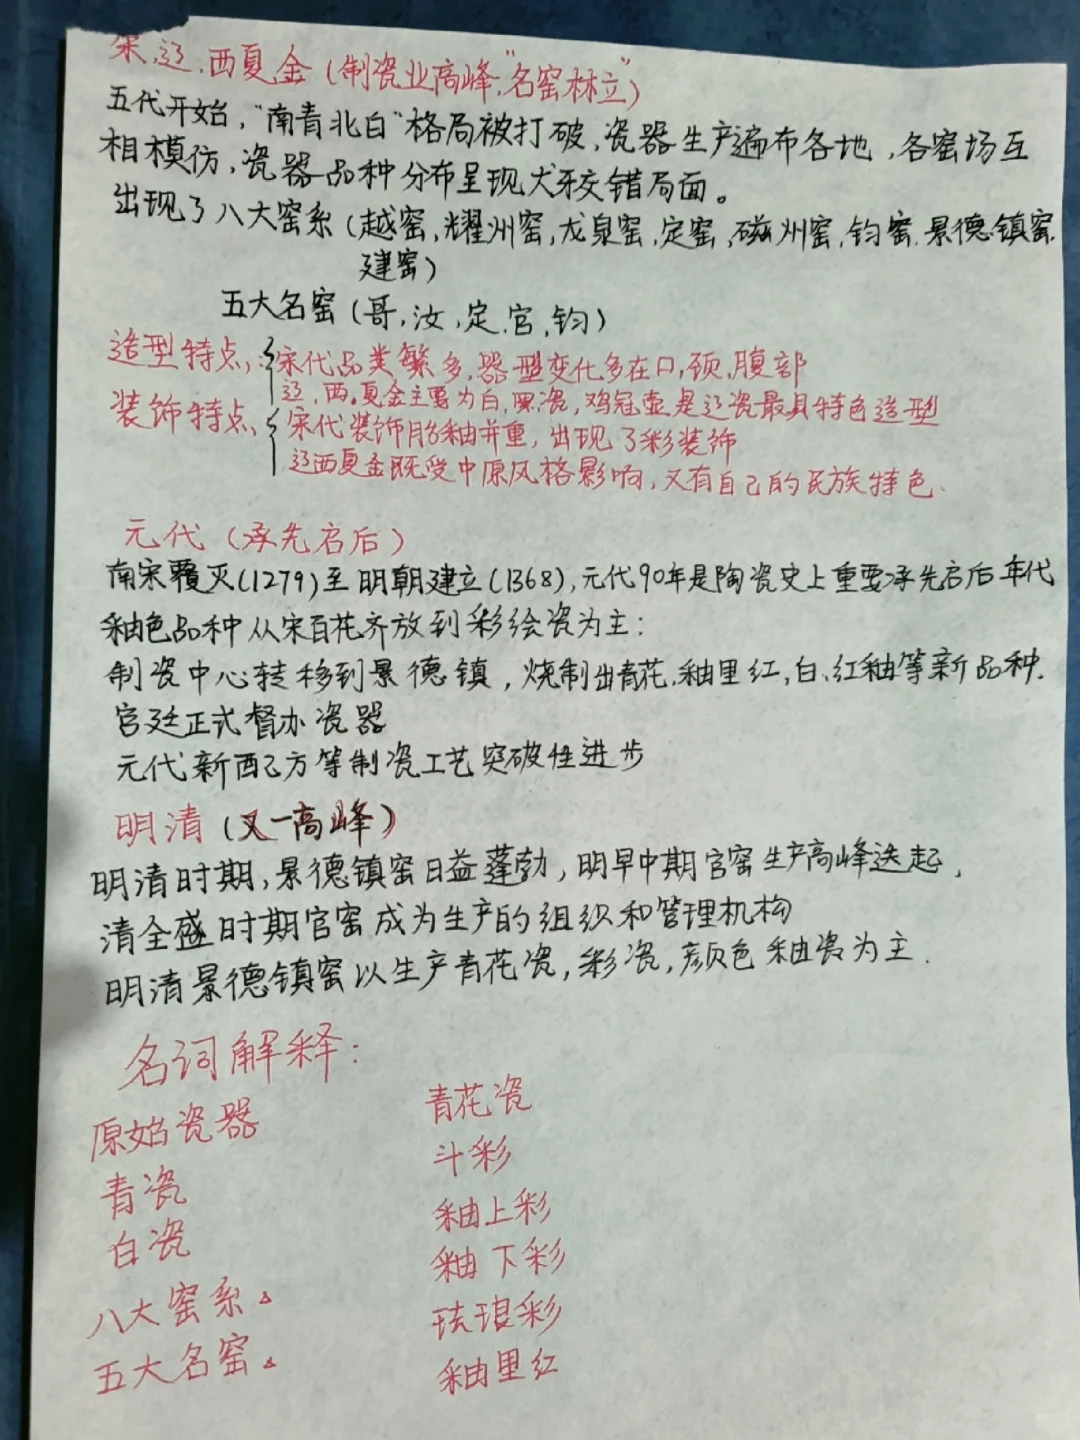 宋,辽,西夏,金(制瓷业高峰,"名窑林立")
五代开始,"南青北白"格局被打破,瓷器生产遍布各地,各窑场互
相模仿,瓷器品种分布呈现犬牙交错局面。
出现了八大窑系(越窑,耀州窑,龙泉窑,定窑,磁州窑,钧窑,景德镇窑,
建窑)
五大名窑(哥,汝,定,官,钧)
造型特点,:宋代品类繁多,器型变化多在口,颈,腹部
辽,西。夏金主要为白,黑瓷,鸡冠壶是辽瓷最具特色造型
装饰特点,宋代装饰胎釉并重,出现了彩装饰
辽西夏金既受中原风格影响,又有自己的民族特色.
元代(承先启后)
南宋覆灭(1279)至明朝建立(1368),元代90年是陶瓷史上重要承先启后年代
釉色品种从宋百花齐放到彩绘瓷为主:
制瓷中心转移到景德镇,烧制出青花,釉里红,白、红釉等新品种.
官廷正式督办瓷器
元代新配方等制瓷工艺突破性进步
明清(又一高峰)
明清时期,景德镇窑日益蓬勃,明早中期官窑生产高峰迭起,
清全盛时期官窑成为生产的组织和管理机构
明清景德镇窑以生产青花瓷,彩瓷,颜色釉瓷为主.
名词解释:
原始瓷器
青瓷
白瓷
八大窑系△
五大名窑△
青花瓷
斗彩
釉上彩
釉下彩
珐琅彩
釉里红